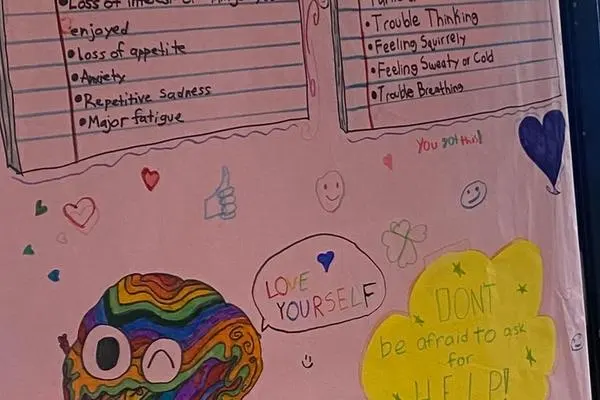 •Loss of interest
enjoyed
•loss of appetite
•Anxiety
•Repetitive sadness
•Major fatigue
•Trouble Thinking
•Feeling Squirrely
•Feeling Sweaty or Cold
•Trouble Breathing
You got this!
LOVE
YOURSELF
DONT
be afraid to ask
for
HELP!